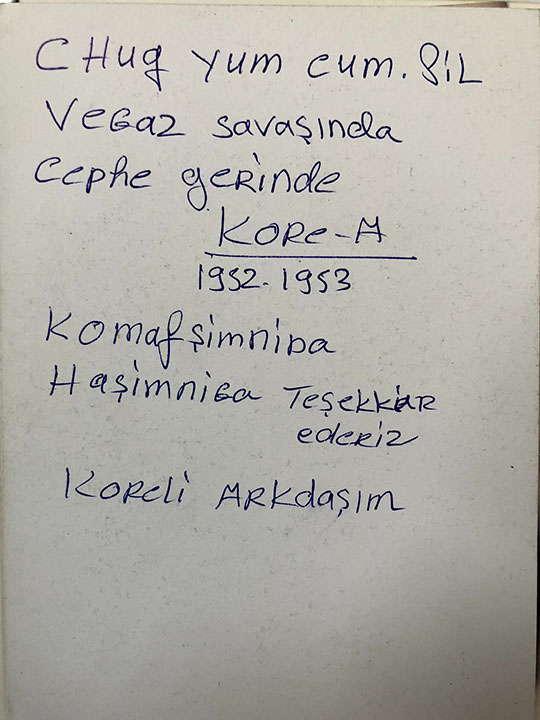 CHug yum cum. ŞİL
VEGAZ savaşında
Cephe gerinde
KORE-A
1952-1953
Komafşimnida
Haşimniga Teşekkür
ederiz
KORELİ ARKdaşım